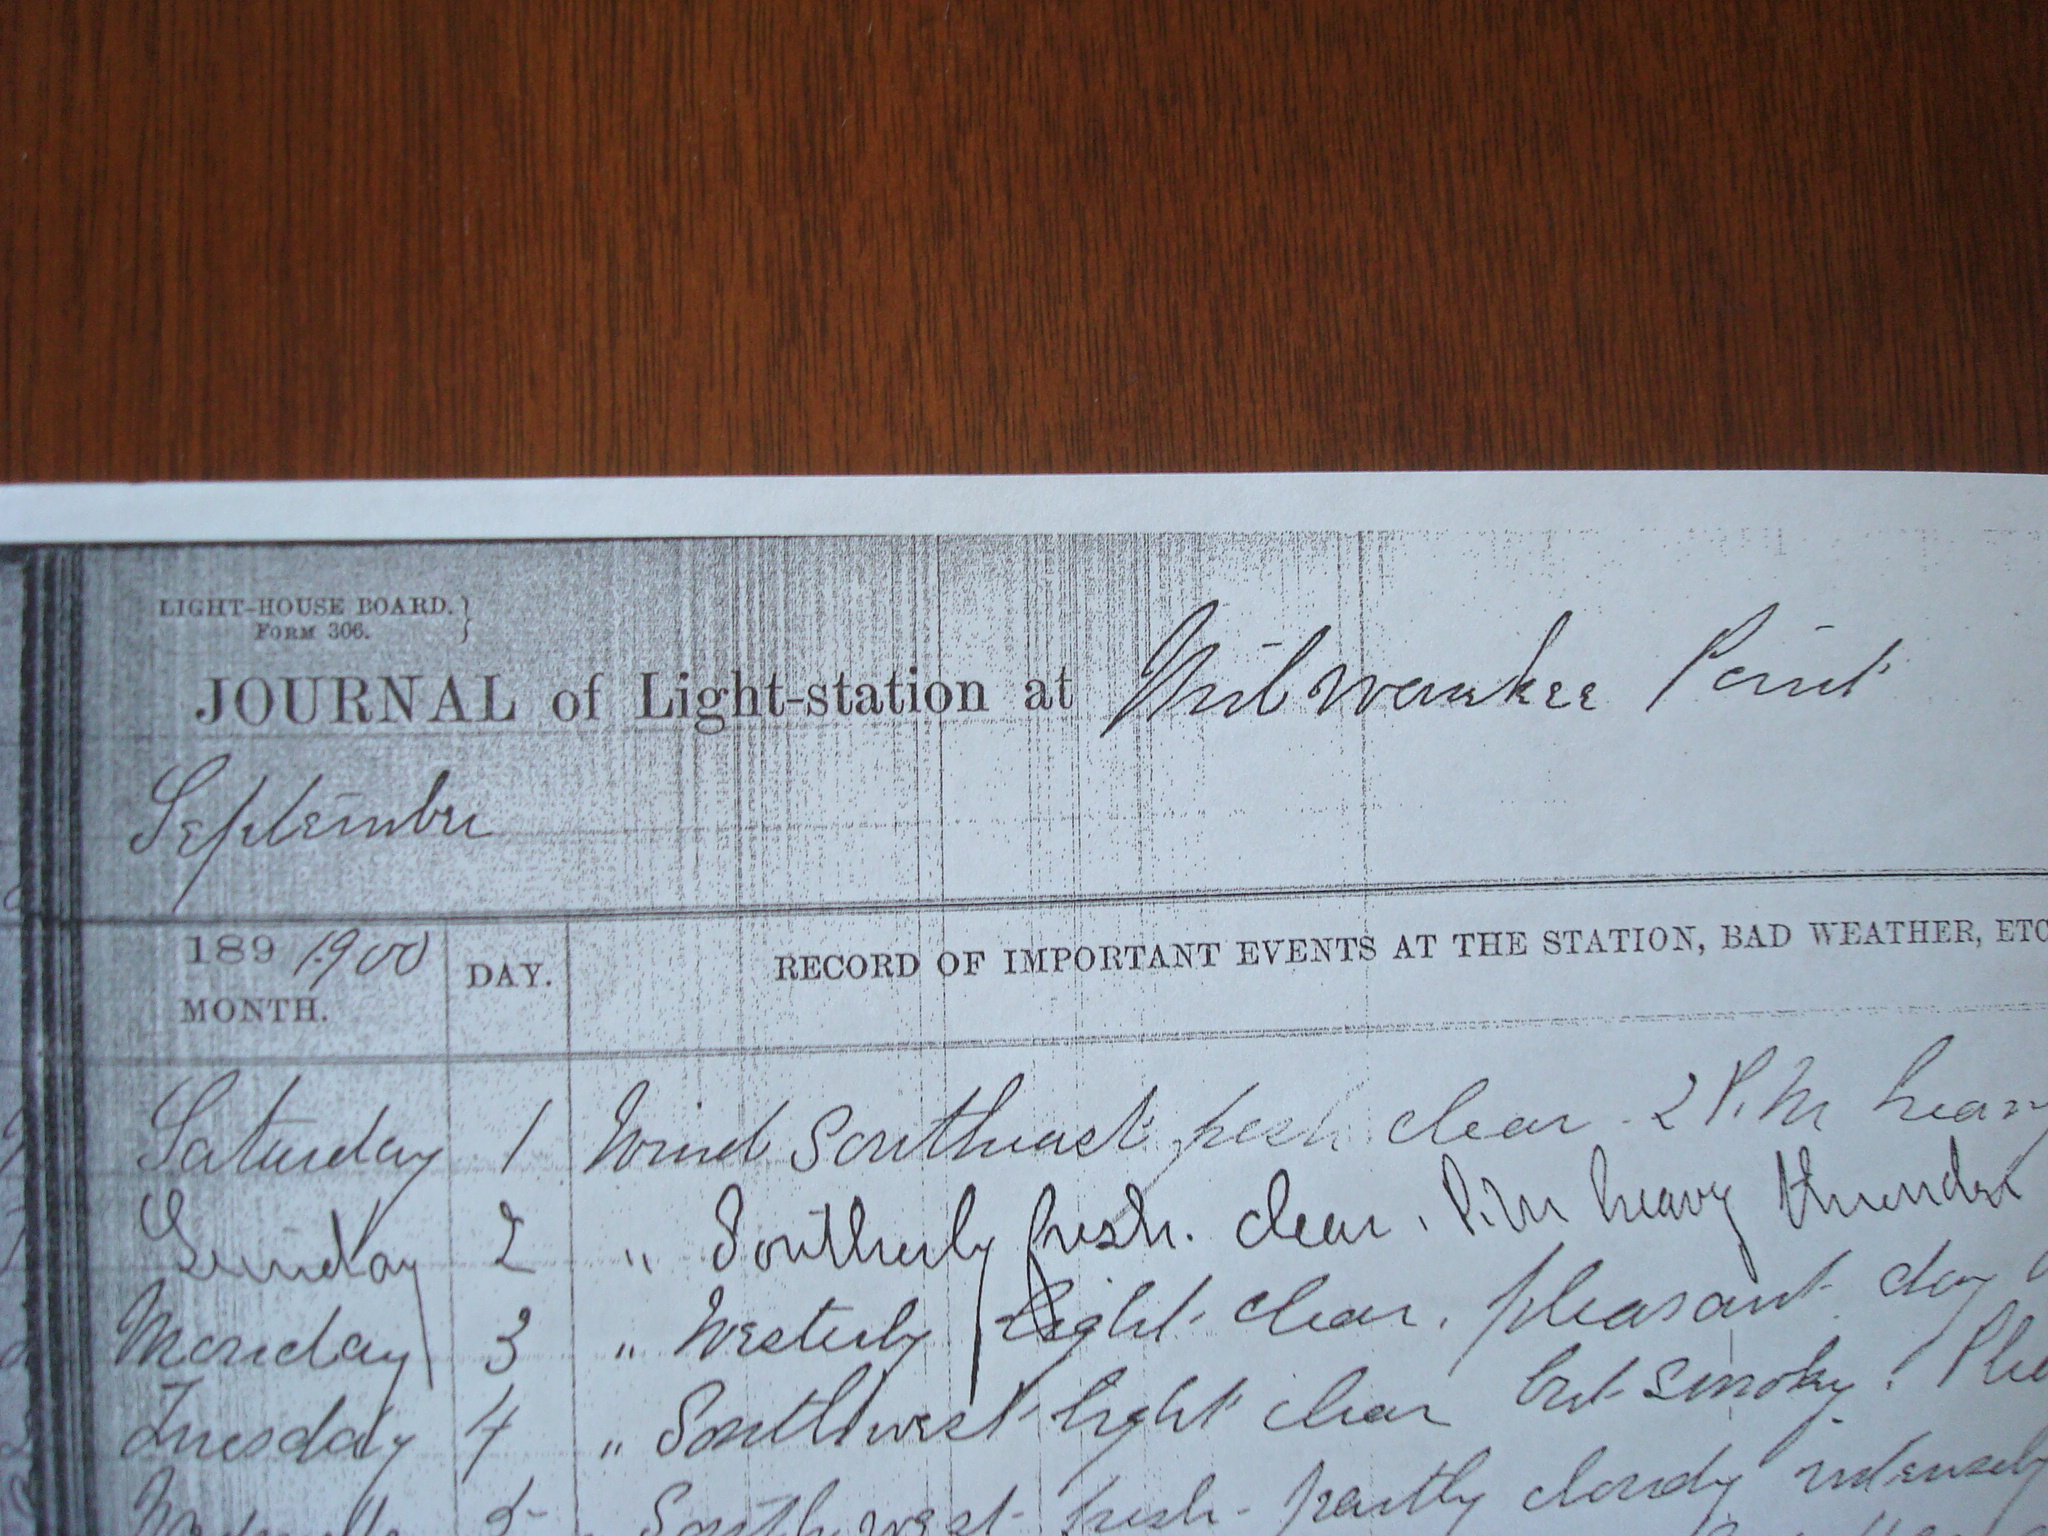 LIGHT-HOUSE BOARD. }
FORM 306.
JOURNAL of Light-station at Milwaukee Point
September
189 1900
MONTH.
DAY.
RECORD OF IMPORTANT EVENTS AT THE STATION, BAD WEATHER, ETC
Saturday 1 Wind Southeast fresh clear. 2 P.M heavy
Sunday 2 " Southerly fresh. clear. P.M heavy thunder
Monday 3 " Westerly light clear. pleasant day
Tuesday 4 " Southwest light clear but smoky.
5 Southwest fresh partly cloudy intensely